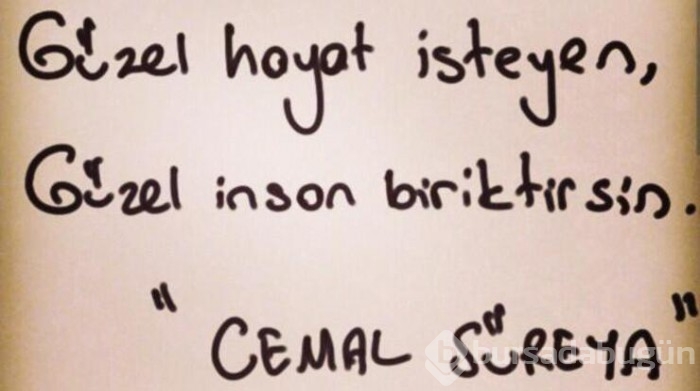 Güzel hayat isteyen,
Güzel insan biriktirsin.
" CEMAL SÜREYA "
bursadabugün